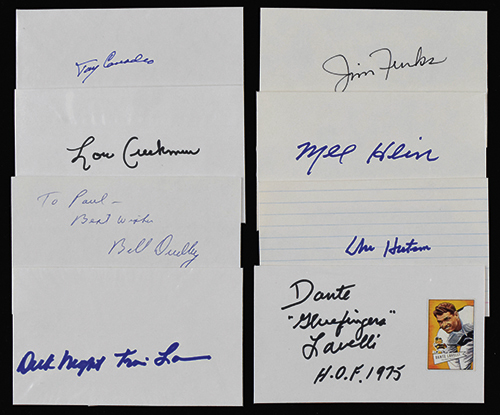 Tony Canadeo
Lou Creekmur
To Paul -
Best Wishes
Bill Dudley
Dick Night Train Lane
Jim Finks
Mel Hein
Don Hutson
Dante
"Gluefingers"
Lavelli
H.O.F. 1975
DANTE LAVELLI